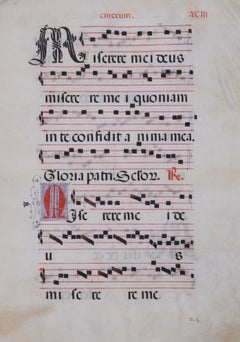 cinerum. XCIII
Miserere mei deus
misere re mei quoniam
in te confidit anima mea.
Gloria patri. Seuor. R.
Mise rere mei de
u s
mi sere re me